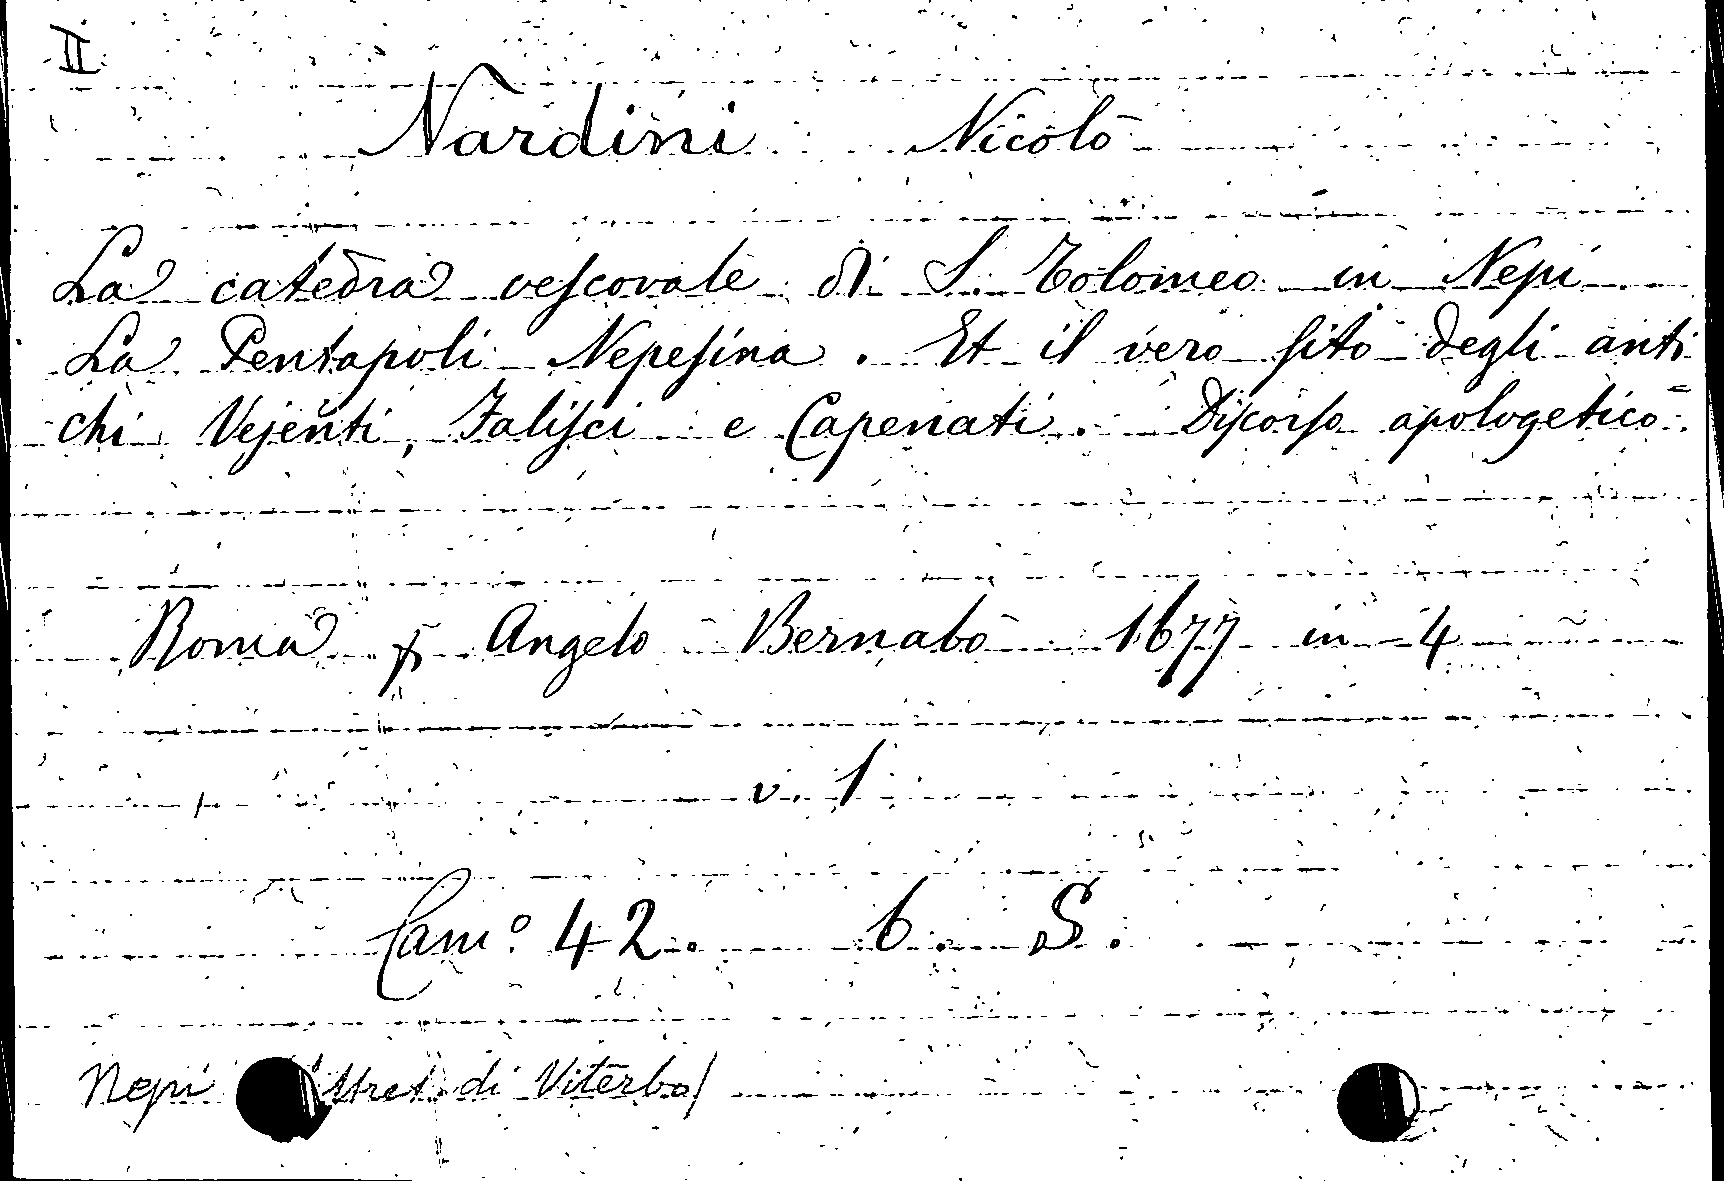 II
Nardini Nicolò
La catedra vescovale di S. Tolomeo in Nepi
La Pentapoli Nepesina. Et il vero sito degli anti
chi Vejenti, Falisci e Capenati. Discorso apologetico.
Roma Angelo Bernabò 1677 in 4
v. 1
Cam.º 42. 6. S.
Nepi di Viterbo)